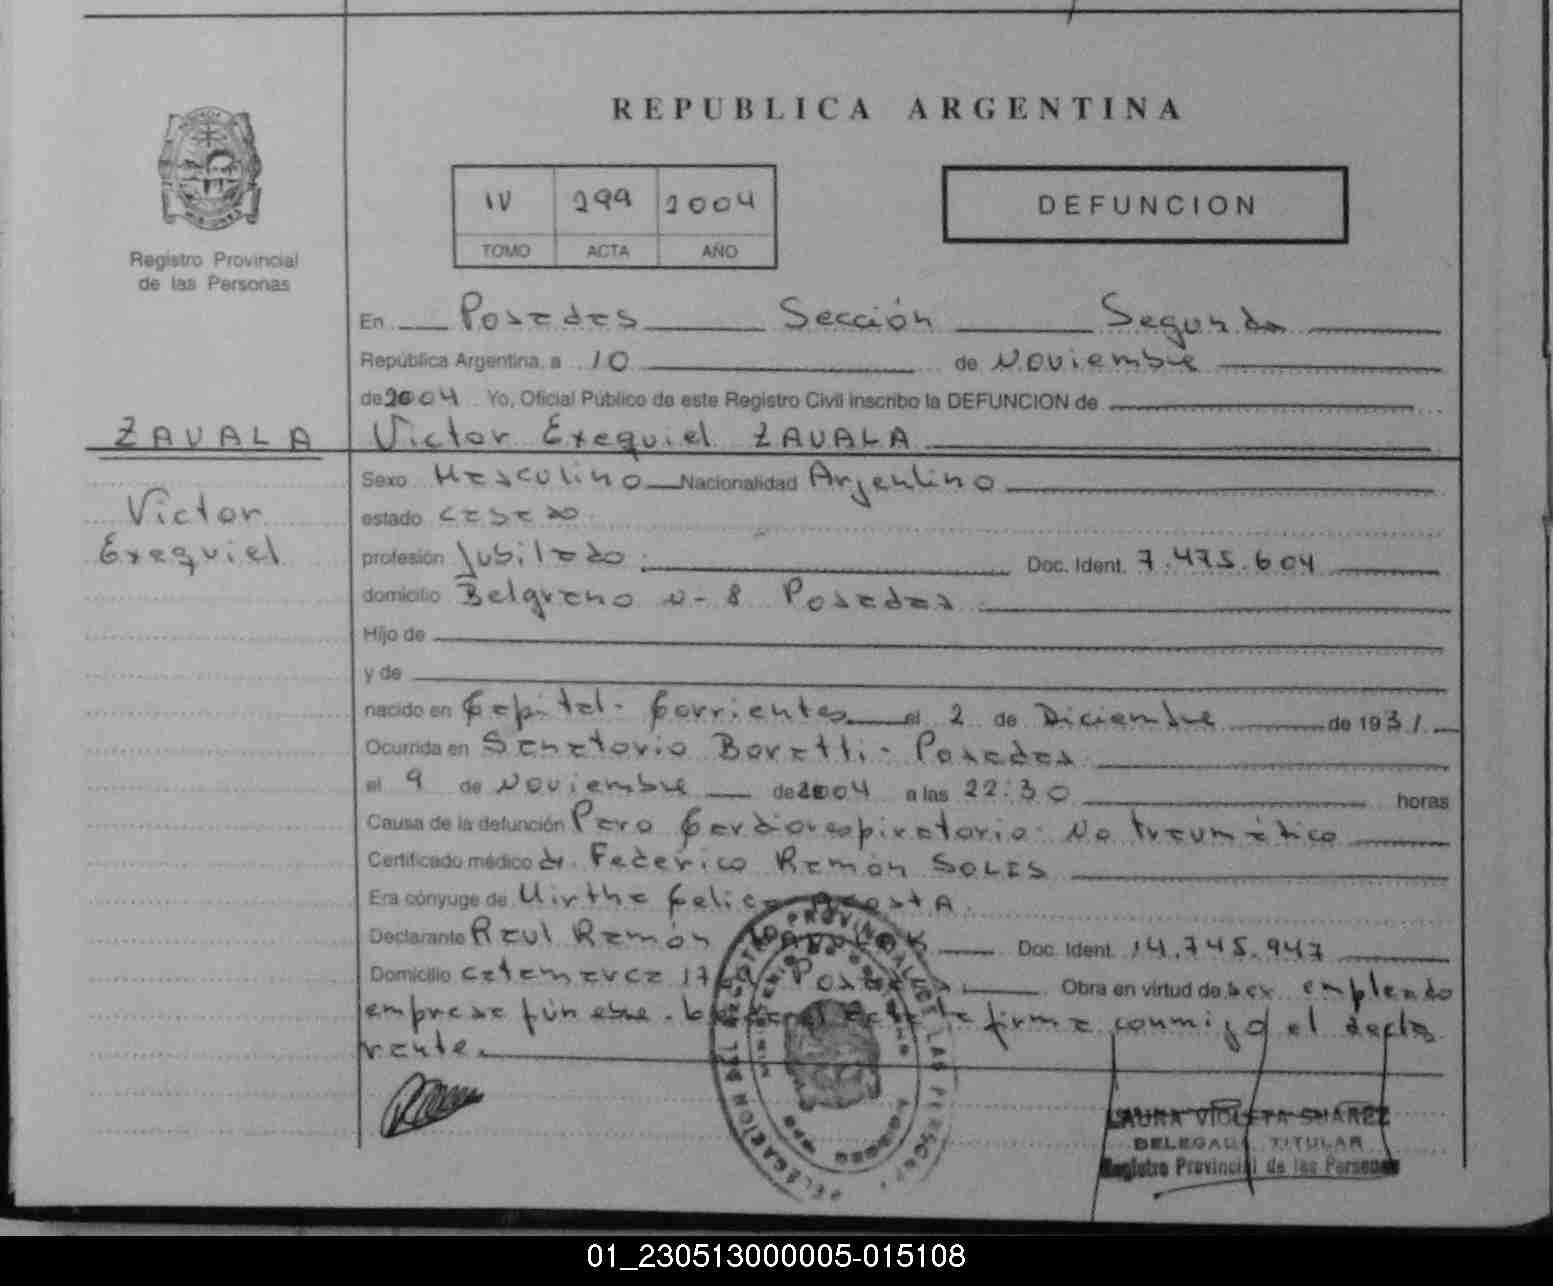 REPUBLICA ARGENTINA
IV 299 2004
TOMO ACTA AÑO
DEFUNCION
Registro Provincial
de las Personas
En Posadas Sección Segunda
República Argentina, a 10 de Noviembre
de 2004 Yo, Oficial Público de este Registro Civil inscribo la DEFUNCION de
ZAVALA
Victor Exequiel ZAVALA
Victor
Exequiel
Sexo Masculino Nacionalidad Argentino
estado casado
profesión Jubilado Doc. Ident. 7.475.604
domicilio Belgrano N-8 Posadas
Hijo de
y de
nacido en Capital - Corrientes el 2 de Diciembre de 1931
Ocurrida en Sanatorio Boratti - Posadas
el 9 de Noviembre de 2004 a las 22:30 horas
Causa de la defunción Paro Cardiorespiratorio No traumático
Certificado médico dr. Federico Ramón SOLIS
Era cónyuge de Mirtha Acosta
Declarante Raul Ramón Doc. Ident. 14.745.947
Domicilio catamarca 17 Posadas Obra en virtud de ser empleado
empresa fúnebre. firma conmigo el decla
rante.
LAURA VIOLETA SUAREZ
DELEGADA TITULAR
Registro Provincial de las Personas
01_230513000005-015108